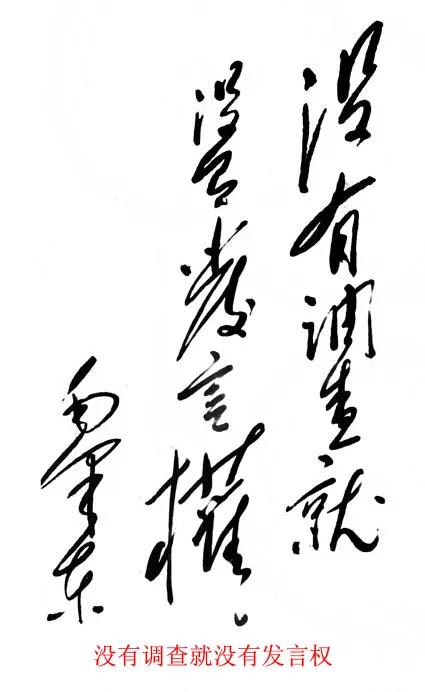 没有调查就
没有发言權。
毛泽东
没有调查就没有发言权